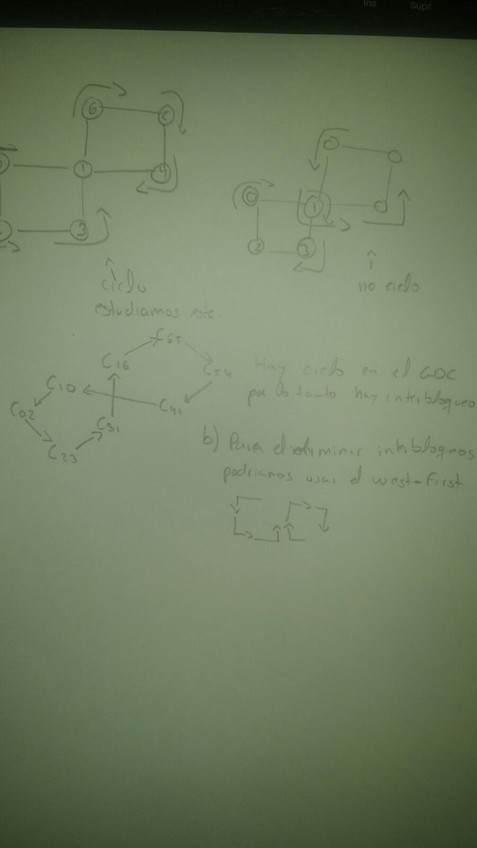 Ins Supr
6 5
1 4
3
0 1
2 3
ciclo
estudiamos este.
no ciclo
C65
C16 C54
C10
C41
C02
C31
C23
Hay ciclo en el GDC
por lo tanto hay interbloqueo
b) Para eliminar interbloqueos
podriamos usar el west-First